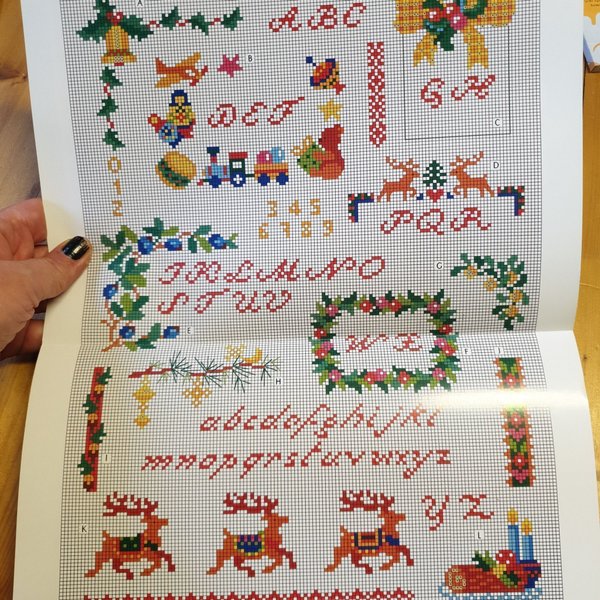 A
A B C
B
G H
D E F
C
0
1
2
D
3 4 5
6 7 8 9
P Q R
G
I K L M N O
S T U V
E
W X
F
H
J
a b c d e f g h i j k l
m n o p q r s t u v w x y z
I
K
Y Z
L